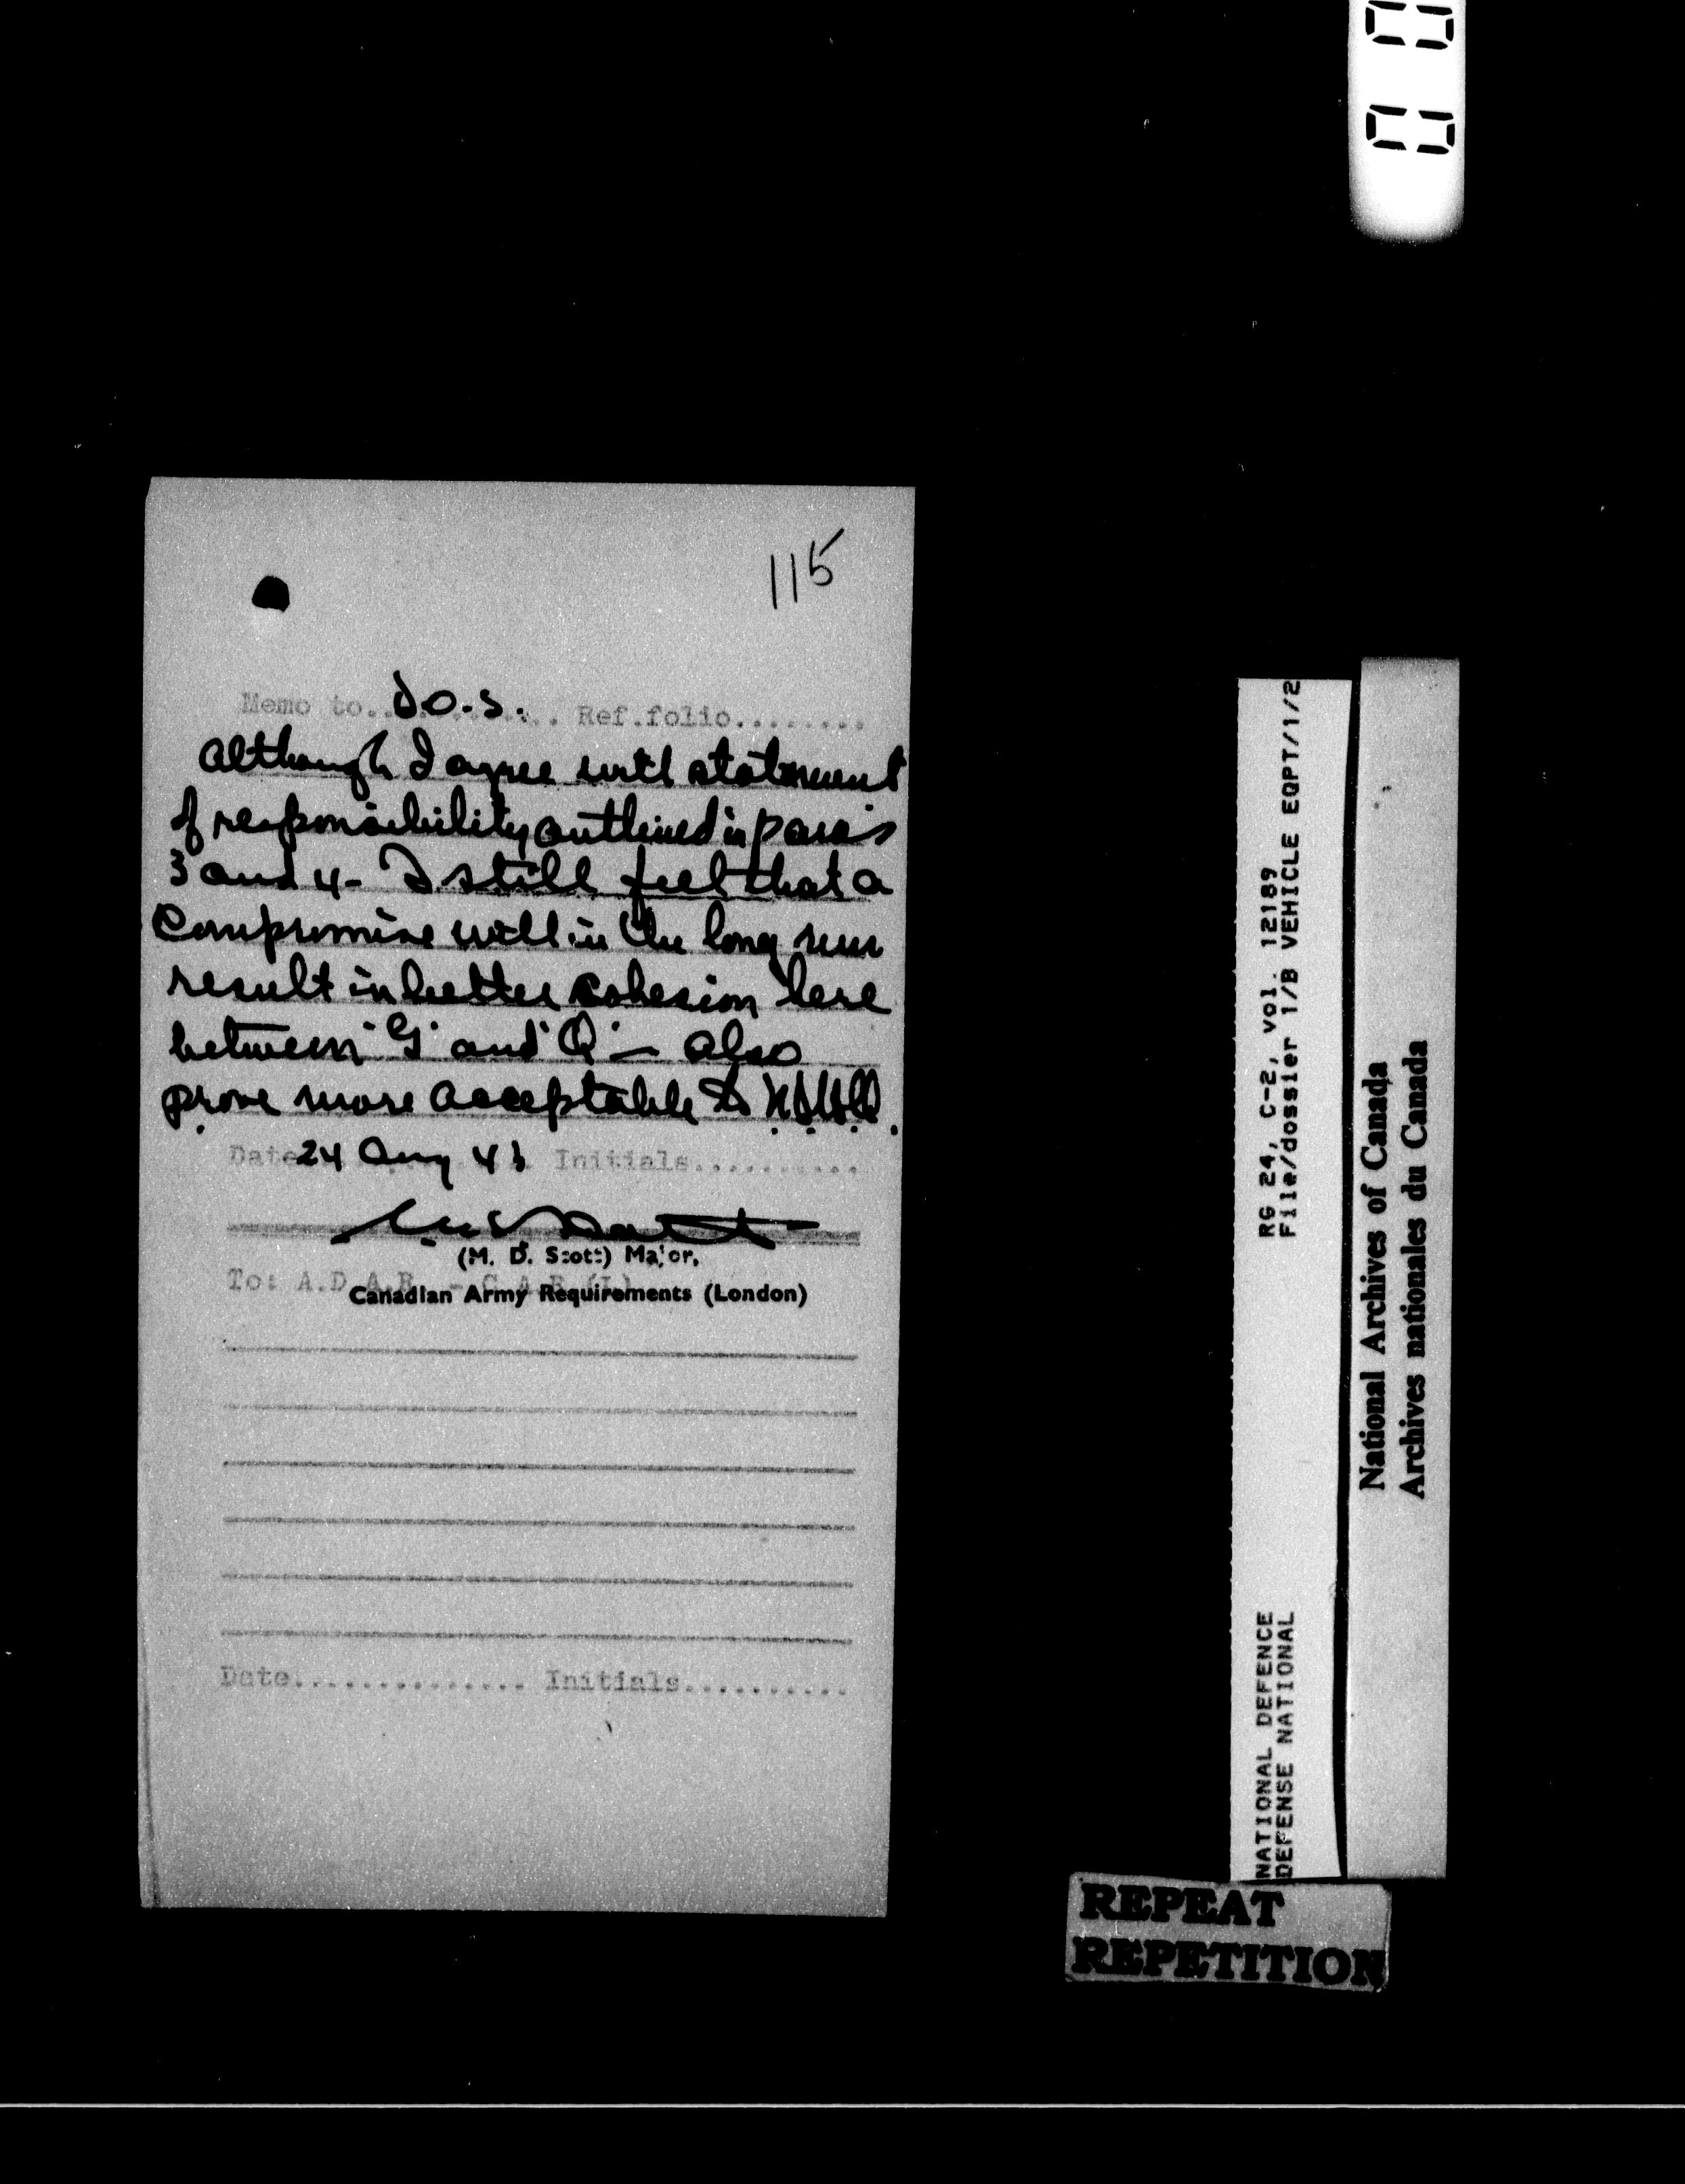 115
Memo to.. D.O.S. .. Ref.folio........
Although I agree with statement
of responsibility outlined in paras
3 and 4 - I still feel that a
Compromise will in the long run
result in better cohesion here
between "G" and "Q" — also
prove more acceptable to N.D.H.Q.
Date 24 Aug 43 Initials...........
(M. D. Scott) Major,
To: A.D.A.R. - C.A.R.(L)
Canadian Army Requirements (London)
Date.............. Initials..........
RG 24, C-2, vol. 12189
File/dossier 1/B VEHICLE EQPT/1/2
NATIONAL DEFENCE
DEFENSE NATIONAL
National Archives of Canada
Archives nationales du Canada
REPEAT
REPETITION